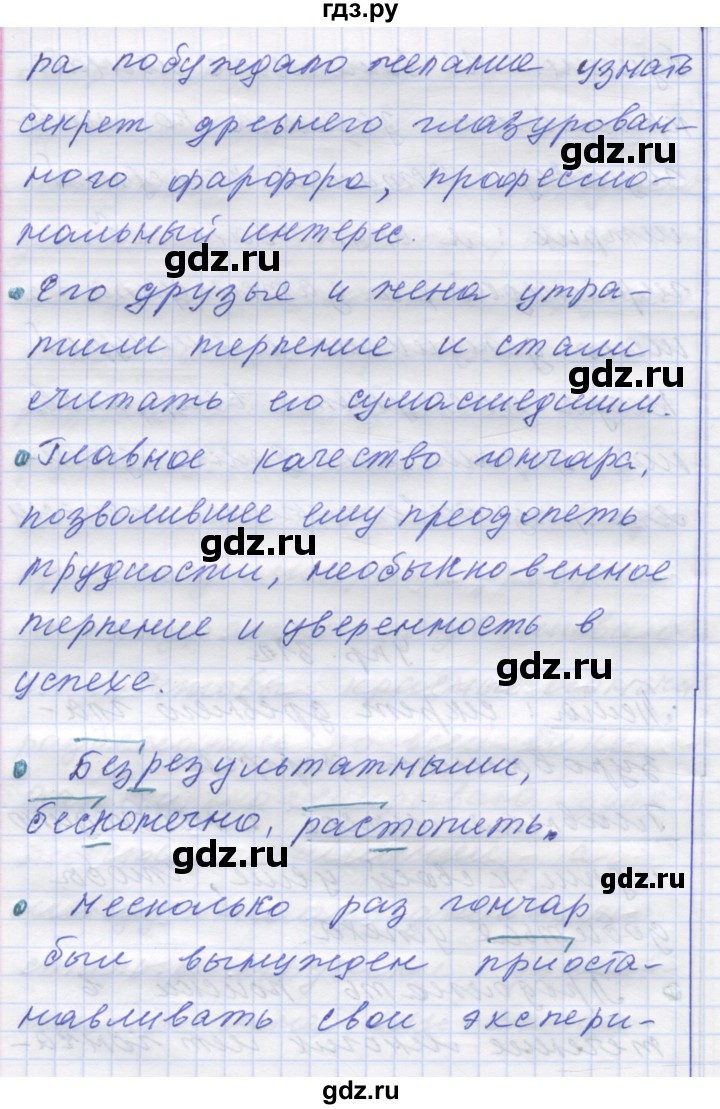 гдз.ру
ра побуждало желание узнать
секрет древнего глазурован-
gdz.ru
ного фарфора, профессио-
нальный интерес.
gdz.ru
• Его друзья и жена утра-
тили терпение и стали
gdz.ru
считать его сумасшедшим.
• Главное качество гончара,
позволившее ему преодолеть
gdz.ru
трудности, необыкновенное
терпение и уверенность в
gdz.ru
успехе.
• Безрезультатными,
бесконечно, растопить.
gdz.ru
gdz.ru
• Несколько раз гончар
был вынужден приоста-
gdz.ru
навливать свои экспери-
gdz.ru